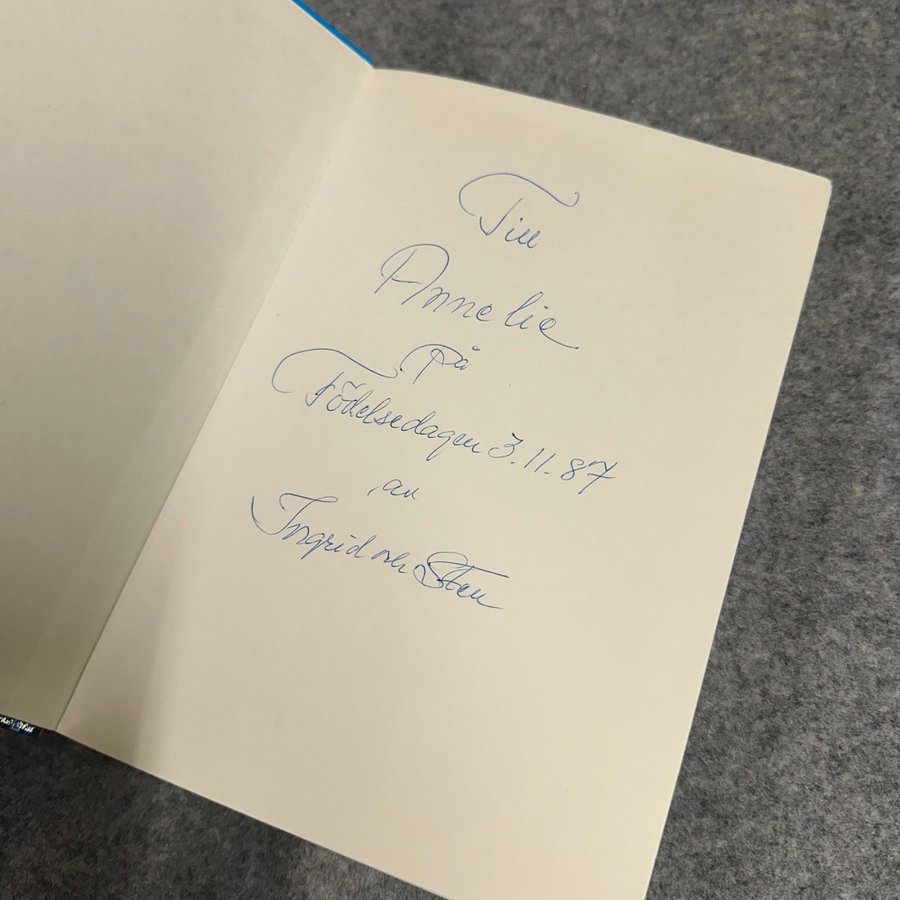 Till
Annelie
På
Födelsedagen 3.11.87
av
Ingrid och Sten